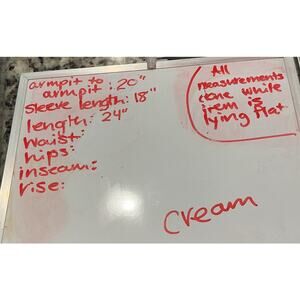 armpit to
armpit: 20"
sleeve length: 18"
length: 24"
waist:
hips:
inseam:
rise:
All
measurements
done while
item is
lying flat
cream